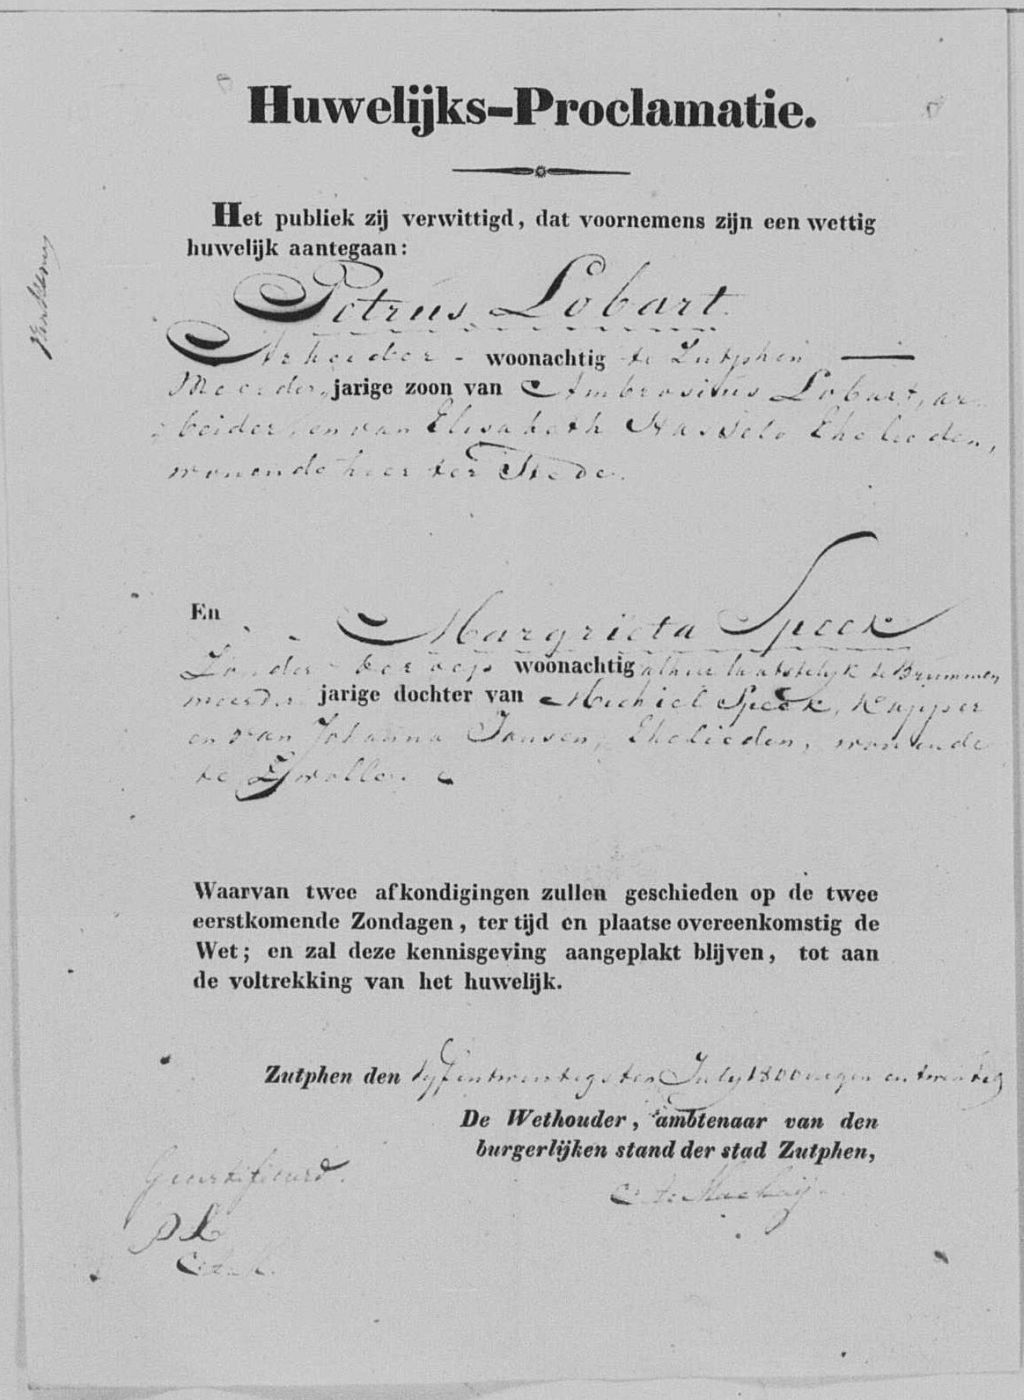 Huwelijks-Proclamatie.
Het publiek zij verwittigd, dat voornemens zijn een wettig
huwelijk aantegaan:
Petrus Lobart.
Arbeider - woonachtig te Zutphen
Meerder jarige zoon van Ambrosius Lobart, ar-
beider, en van Elisabeth Hasselo Ehelieden,
wonende hier ter Stede.
En Margrieta Speek
Zonder beroep woonachtig alhier laatstelyk te Brummen
meerder jarige dochter van Michiel Speek, Kapper
en van Johanna Jansen, Ehelieden, wonende
te Zwolle.
Waarvan twee afkondigingen zullen geschieden op de twee
eerstkomende Zondagen, ter tijd en plaatse overeenkomstig de
Wet; en zal deze kennisgeving aangeplakt blijven, tot aan
de voltrekking van het huwelijk.
Zutphen den Vyfentwintigsten July 1800 negen en twintig
De Wethouder, ambtenaar van den
burgerlijken stand der stad Zutphen,
Gecertificeerd.